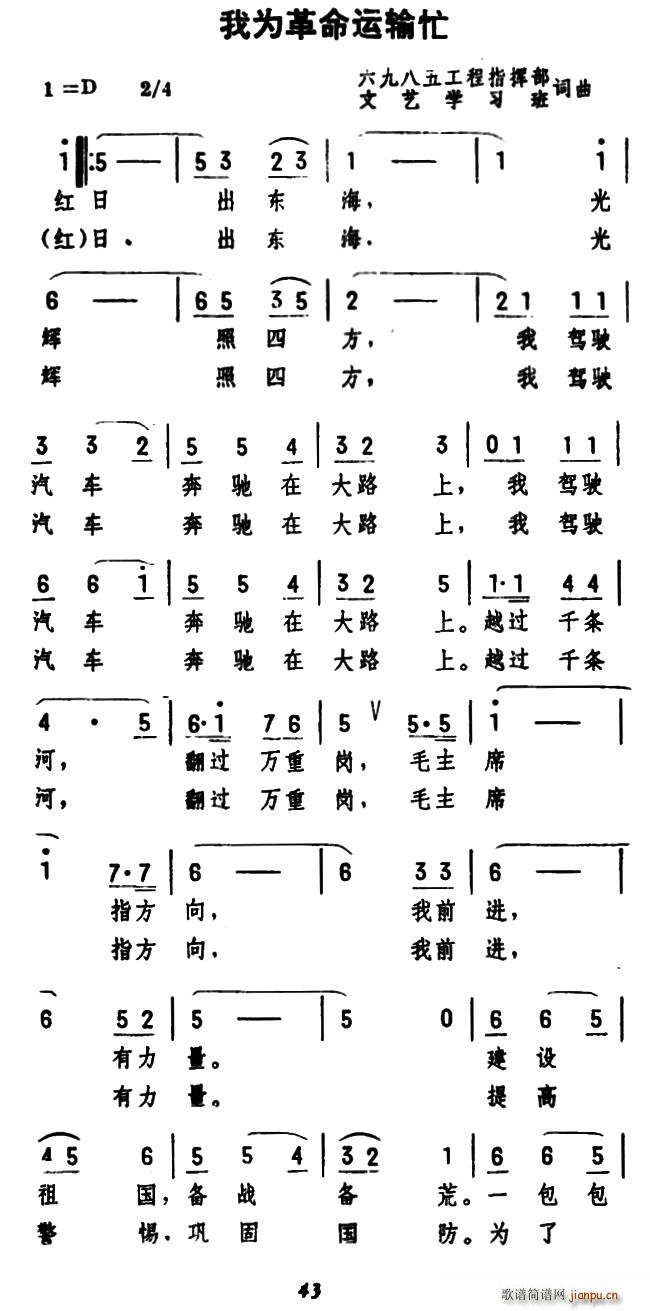 我为革命运输忙
1=D 2/4 六九八五工程指挥部
文艺学习班 词曲
i 5 — 5 3 2 3 1 — 1 i
红日 出东 海， 光
(红)日． 出东 海． 光
6 — 6 5 3 5 2 — 2 1 1 1
辉 照四 方， 我 驾驶
辉 照四 方， 我 驾驶
3 3 2 5 5 4 3 2 3 0 1 1 1
汽车 奔驰在 大路 上，我 驾驶
汽车 奔驰在 大路 上，我 驾驶
6 6 i 5 5 4 3 2 5 1·1 4 4
汽车 奔驰在 大路 上。越过 千条
汽车 奔驰在 大路 上。越过 千条
4 · 5 6·i 7 6 5 V 5·5 i —
河， 翻过 万重 岗， 毛主 席
河， 翻过 万重 岗， 毛主 席
i 7·7 6 — 6 3 3 6 —
指方 向， 我前 进，
指方 向， 我前 进，
6 5 2 5 — 5 0 6 6 5
有力 量。 建设
有力 量。 提高
4 5 6 5 5 4 3 2 1 6 6 5
祖 国，备战 备 荒。一包包
警 惕．巩固 国 防。为了
43
歌谱简谱网 jianpu.cn